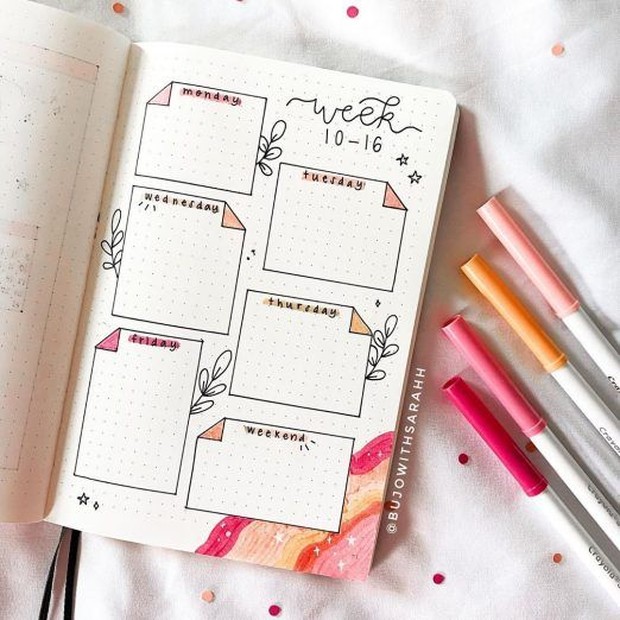 week
10-16
monday
tuesday
wednesday
thursday
friday
weekend
@BUJOWITHSARAHH
Crayola
Crayola
Crayola